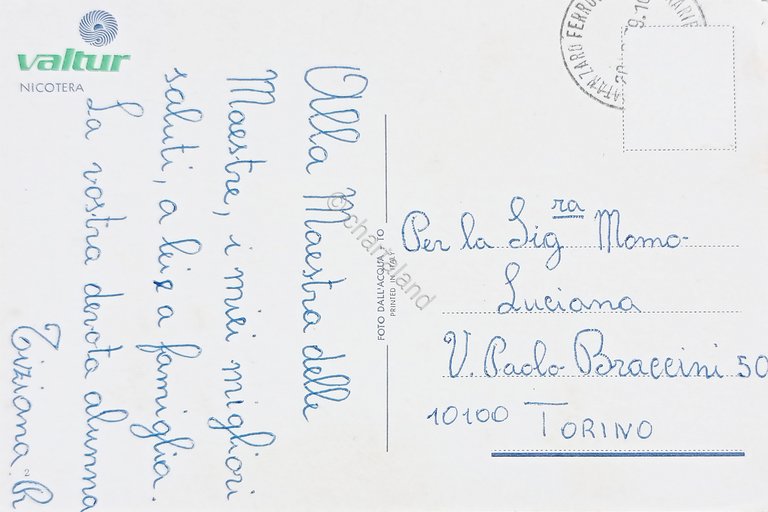 valtur
NICOTERA
Alla Maestra delle
Maestre, i miei migliori
saluti, a lei e a famiglia.
La vostra devota alunna
Tiziana R
2
FOTO DALL'ACQUA - TO
PRINTED IN ITALY
© chartaland
FERRO
19.10
Per la Sig ra Momo
Luciana
V. Paolo Braccini 50
10100 TORINO